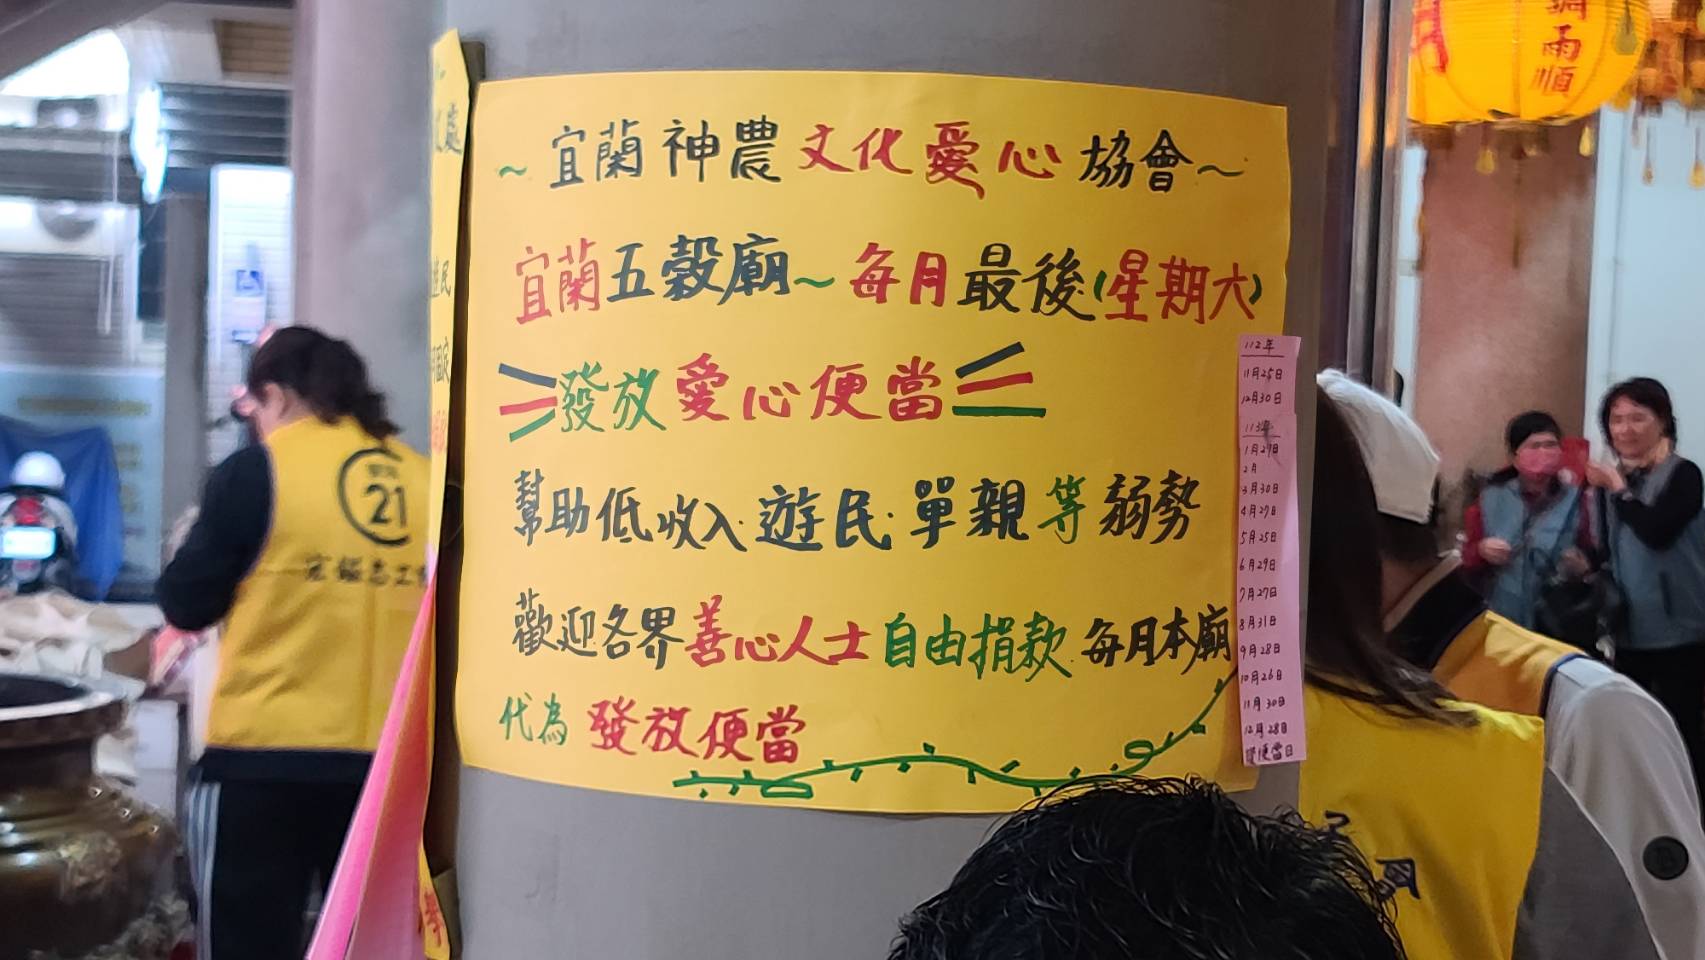 ~宜蘭神農文化愛心協會~
宜蘭五穀廟~每月最後(星期六)
發放愛心便當
幫助低收入.遊民.單親等弱勢
歡迎各界善心人士自由捐款.每月本廟
代為發放便當
112年
11月25日
12月30日
113年
1月27日
2月
3月30日
4月27日
5月25日
6月29日
7月27日
8月31日
9月28日
10月26日
11月30日
12月28日
便當日
處
遊民
國
21
調雨順